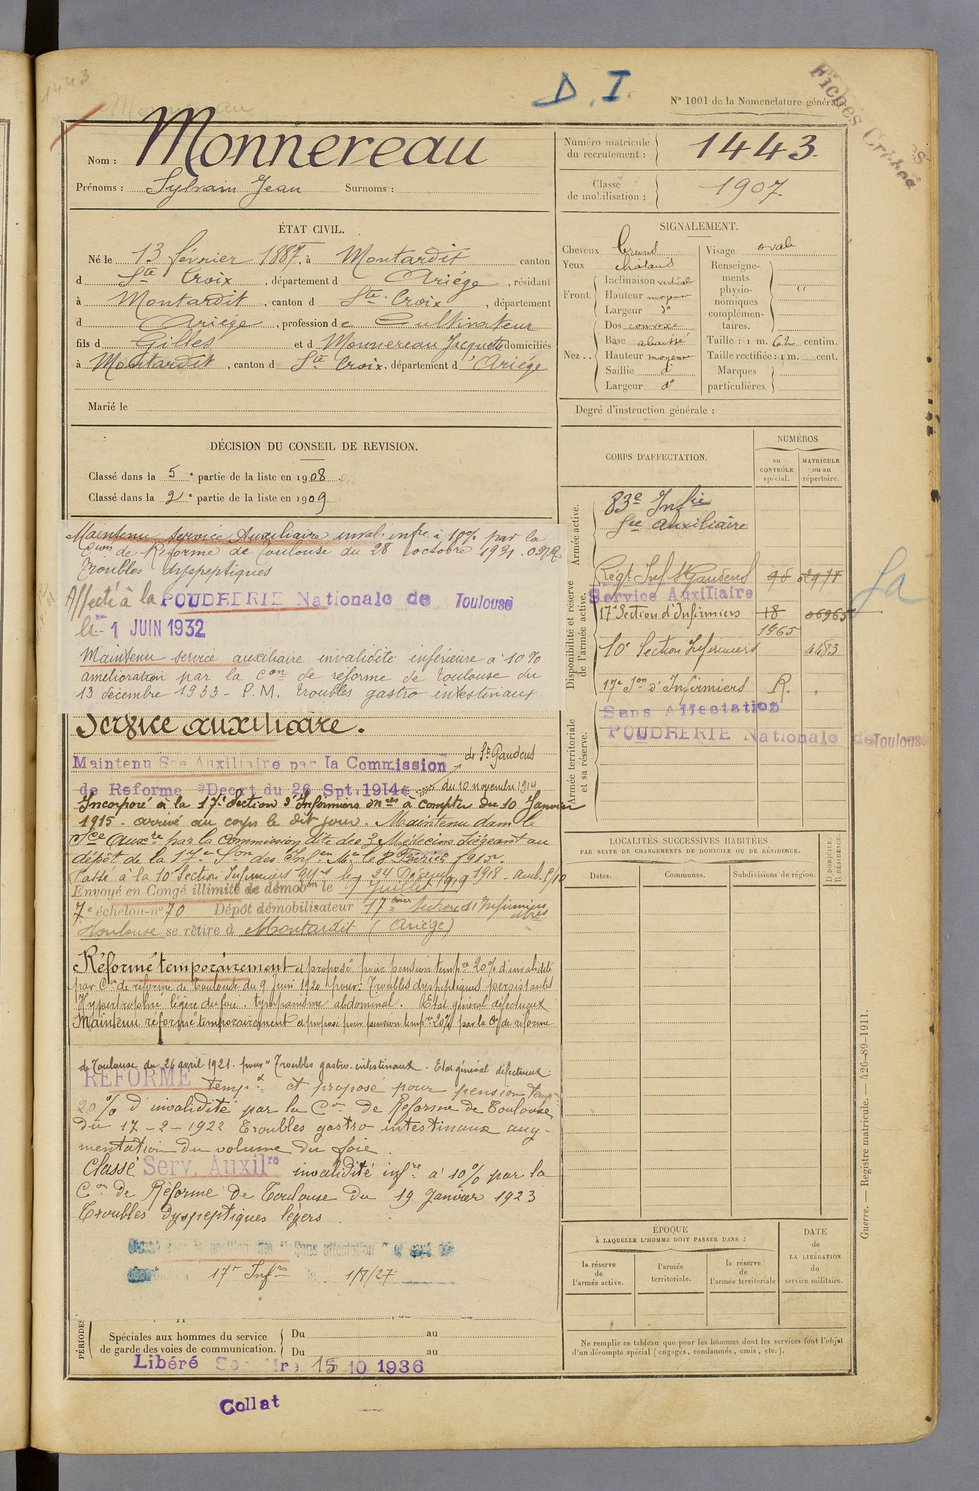 D. I.
N° 1001 de la Nomenclature générale
Fiches
Nom : Monnereau
Prénoms : Sylvain Jean Surnoms :
Numéro matricule du recrutement : 1443
Classe de mobilisation : 1907
ÉTAT CIVIL.
Né le 13 février 1887, à Montardit canton
d Ste Croix, département d Ariège, résidant
à Montardit, canton d Ste Croix, département
d Ariège, profession de Cultivateur
fils d Gilles et d Monnereau domiciliés
à Montardit, canton d Ste Croix, département d'Ariége
Marié le
SIGNALEMENT.
Cheveux brund
Yeux chatains
Front. Inclinaison vertical
Hauteur moyenne
Largeur d°
Nez.. Dos convexe
Base
Hauteur moyenne
Saillie d°
Largeur d°
Visage ovale
Renseignements physionomiques complémentaires. "
Taille : 1 m. 62 centim.
Taille rectifiée : 1 m. cent.
Marques particulières.
Degré d'instruction générale :
DÉCISION DU CONSEIL DE REVISION.
Classé dans la 5e partie de la liste en 1908
Classé dans la 2e partie de la liste en 1909
Maintenu service Auxiliaire inval. infre à 10% par la
Con de Réforme de Toulouse du 28 octobre 1931.
Troubles dyspeptiques
Affecté à la POUDRERIE Nationale de Toulouse
le 1 JUIN 1932
Maintenu service auxiliaire invalidité inférieure à 10%
amélioration par la Con de réforme de Toulouse du
13 décembre 1933 - P.M. troubles gastro intestinaux
Service auxiliaire.
Maintenu Sce Auxiliaire par la Commission de St Gaudens
de Reforme *Decrt du 26 Spt. 1914* du 10 novembre 1914
Incorporé à la 17e Section d'Infirmiers mres à compter du 10 Janvier
1915. arrivé au corps le dit jour. Maintenu dans le
Sce Auxre par la Commission dite des 3 Médecins siégeant au
dépôt de la 17e Son des Infers Mres le 8 Février 1915.
Passé à la 10e Section Infirmiers le 24 Décembre 1918
Envoyé en Congé illimité de démobon le 7 Juillet 1919
7e échelon-n° 70 Dépôt démobilisateur 17eme Section d'Infirmiers
Toulouse se retire à Montardit (Ariège)
Réformé temporairement et proposé pour pension tempre 20% d'invalidité
par Con de réforme de Toulouse du 9 Juin 1920 pour Troubles dyspeptiques persistants
Hypertrophie légère du foie. tympanisme abdominal. Etat général défectueux
Maintenu réformé temporairement et proposé pour pension tempre 20% par la Con de réforme
de Toulouse du 26 avril 1921. pour "Troubles gastro-intestinaux. Etat général défectueux
REFORMÉ tempt et proposé pour pension temp
20% d'invalidité par la Con de Réforme de Toulouse
du 17-2-1922 Troubles gastro intestinaux aug-
mentation du volume du foie.
Classé Serv. Auxilre invalidité infre à 10% par la
Con de Réforme de Toulouse du 19 Janvier 1923
Troubles dyspeptiques légers
"Sans affectation"
17e Infres 1/7/27
PÉRIODES
Spéciales aux hommes du service de garde des voies de communication. Du au
Du au
Libéré 15 10 1936
Collat
CORPS D'AFFECTATION.
NUMÉROS
au CONTRÔLE spécial.
MATRICULE ou au répertoire.
Armée active.
83e Infie
Sce auxiliaire
Disponibilité et réserve de l'armée active.
Regt Inf St Gaudens 96 2977
Service Auxiliaire
17e Section d'Infirmiers 18 06965
1465
10e Section Infirmiers 4483
17e Son d'Infirmiers R.
Sans Affectation
POUDRERIE Nationale de Toulouse
Armée territoriale et sa réserve.
LOCALITÉS SUCCESSIVES HABITÉES
PAR SUITE DE CHANGEMENTS DE DOMICILE OU DE RÉSIDENCE.
Dates. Communes. Subdivisions de région. D. DOMICILE. R. RÉSIDENCE.
ÉPOQUE
À LAQUELLE L'HOMME DOIT PASSER DANS :
la réserve de l'armée active. l'armée territoriale. la réserve de l'armée territoriale
DATE de LA LIBÉRATION du service militaire.
Ne remplir ce tableau que pour les hommes dont les services font l'objet
d'un décompte spécial (engagés, condamnés, omis, etc.).
Guerre. — Registre matricule. — 426-89-1911.